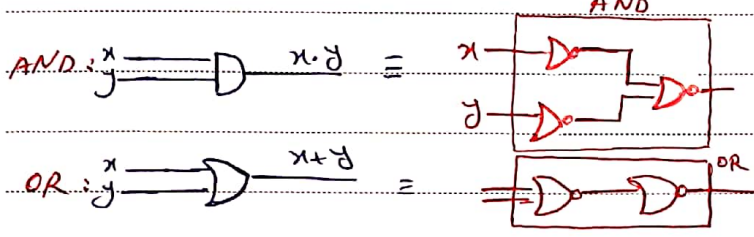 AND
AND: x y x·y ≡ x y
OR: x y x+y = OR